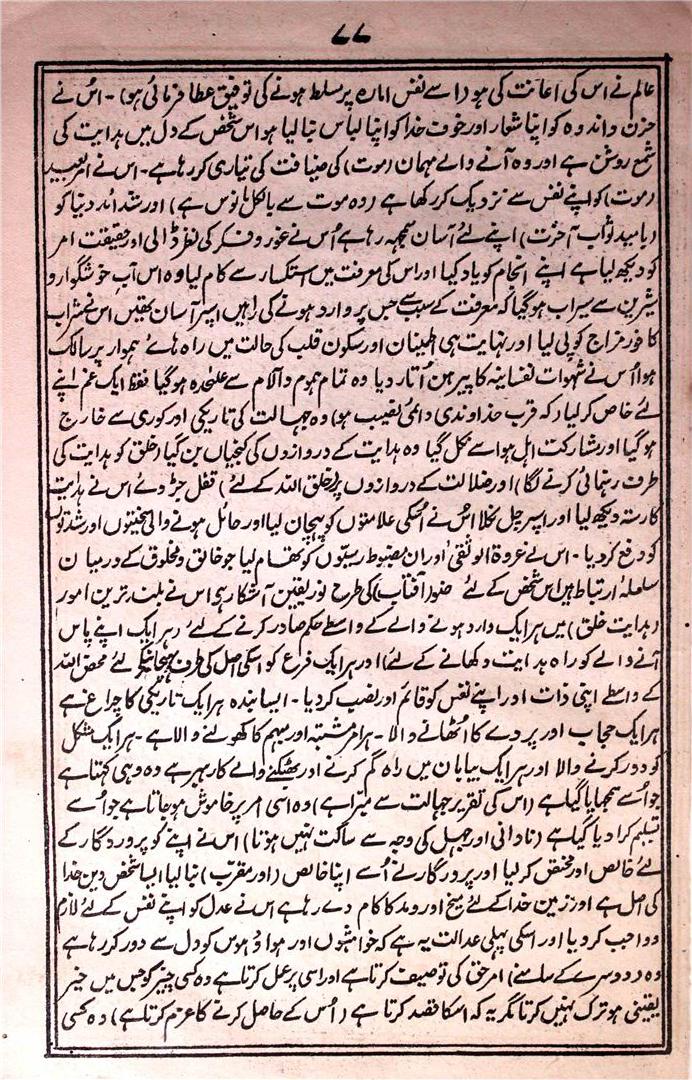 ۷۷
عالم نے اس کی اعانت کی ہو (اسے نفس امارہ پر مسلط ہونے کی توفیق عطا فرمائی ہو) ۔ اُس نے
حزن و اندوہ کو اپنا شعار اور خوف خدا کو اپنا لباس بنا لیا ہو اس شخص کے دل میں ہدایت کی
شمع روشن ہے اور وہ آنے والے مہمان (موت) کی ضیافت کی تیاری کر رہا ہے ۔ اس نے امر بعید
(موت) کو اپنے نفس سے نزدیک کر رکھا ہے (وہ موت سے بالکل مانوس ہے) اور شدائد دنیا کو
(بامید ثواب آخرت) اپنے لئے آسان سمجھ رہا ہے اُس نے غور و فکر کی نظر ڈالی اور حقیقت امر
کو دیکھ لیا ہے اپنے انجام کو یاد کیا اور اس کی معرفت میں استکسار سے کام لیا وہ اس آب خوشگوار و
شیرین سے سیراب ہو گیا کہ معرفت کے سبب سے جس پر وارد ہونے کی راہیں اسپر آسان تھیں اس نے شراب
کافور مزاج کو پی لیا اور نہایت ہی اطینان اور سکون قلب کی حالت میں راہ ہائے ہموار پر سالک
ہوا اُس نے شہوات نفسانیہ کا پیرہن اُتار دیا وہ تمام ہموم و آلام سے علٰحدہ ہو گیا فقط ایک غم اپنے
لئے خاص کر لیا (کہ قرب خداوندی دائمی نصیب ہو) وہ جہالت کی تاریکی اور کوری سے خارج
ہو گیا اور مشارکت اہل ہوا سے نکل گیا وہ ہدایت کے دروازوں کی کنجیاں بن گیا (خلق کو ہدایت کی
طرف رہنمائی کرنے لگا) اور ضلالت کے دروازوں پر (خلق اللہ کے لئے) قفل جڑ دئے اس نے ہدایت
کا رستہ دیکھ لیا اور اسپر چل نکلا اُس نے اُسکی علامتوں کو پہچان لیا اور حائل ہونے والی سختیوں اور شدتوں
کو دفع کر دیا ۔ اس نے عروۃ الوثقیٰ اور ان مضبوط رسّیوں کو تھام لیا جو خالق و مخلوق کے درمیان
سلسلۂ ارتباط ہیں اس شخص کے لئے ضوء (آفتاب) کی طرح نور یقین آشکار ہے اس نے بلند ترین امور
(ہدایت خلق) میں ہر ایک وارد ہونے والے کے واسطے حکم صادر کرنے کے لئے (ہر ایک اپنے پاس
آنے والے کو راہ ہدایت دکھانے کے لئے) اور ہر ایک فرع کو اسکی اصل کی طرف پہنچانیکے لئے محض اللہ
کے واسطے اپنی ذات اور اپنے نفس کو قائم اور نصب کر دیا ۔ ایسا بندہ ہر ایک تاریکی کا چراغ ہے
ہر ایک حجاب اور پردے کا اُٹھانے والا ۔ ہر امر مشتبہ اور مبہم کا کھولنے والا ہے ۔ ہر ایک مشکل
کو دور کرنے والا اور ہر ایک بیابان میں راہ گم کرنے اور بھٹکنے والے کا رہبر ہے وہ وہی کہتا ہے
جو اُسے سمجھایا گیا ہے (اس کی تقریر جہالت سے مبرّا ہے) وہ اسی امر پر خاموش ہو جاتا ہے جو اُسے
تسلیم کرا دیا گیا ہے (نادانی اور جہل کی وجہ سے ساکت نہیں ہوتا) اس نے اپنے کو پروردگار کے
لئے خالص اور مختص کر لیا اور پرورگار نے اُسے اپنا خالص (اور مقرّب) بنا لیا ایسا شخص دین خدا
کی اصل ہے اور زمین خدا کے لئے میخ اور وتد کا کام دے رہا ہے اس نے عدل کو اپنے نفس کے لئے لازم
و واجب کر دیا اور اسکی پہلی عدالت یہ ہے کہ خواہشوں اور ہوا و ہوس کو دل سے دور کر رہا ہے
وہ (دوسرے کے سامنے) امر حق کی توصیف کرتا ہے اور اسی پر عمل کرتا ہے وہ کسی چیز کو جس میں خیر
یقینی ہو ترک نہیں کرتا مگر یہ کہ اسکا قصد کرتا ہے (اُس کے حاصل کرنے کا عزم کرتا ہے) وہ کسی